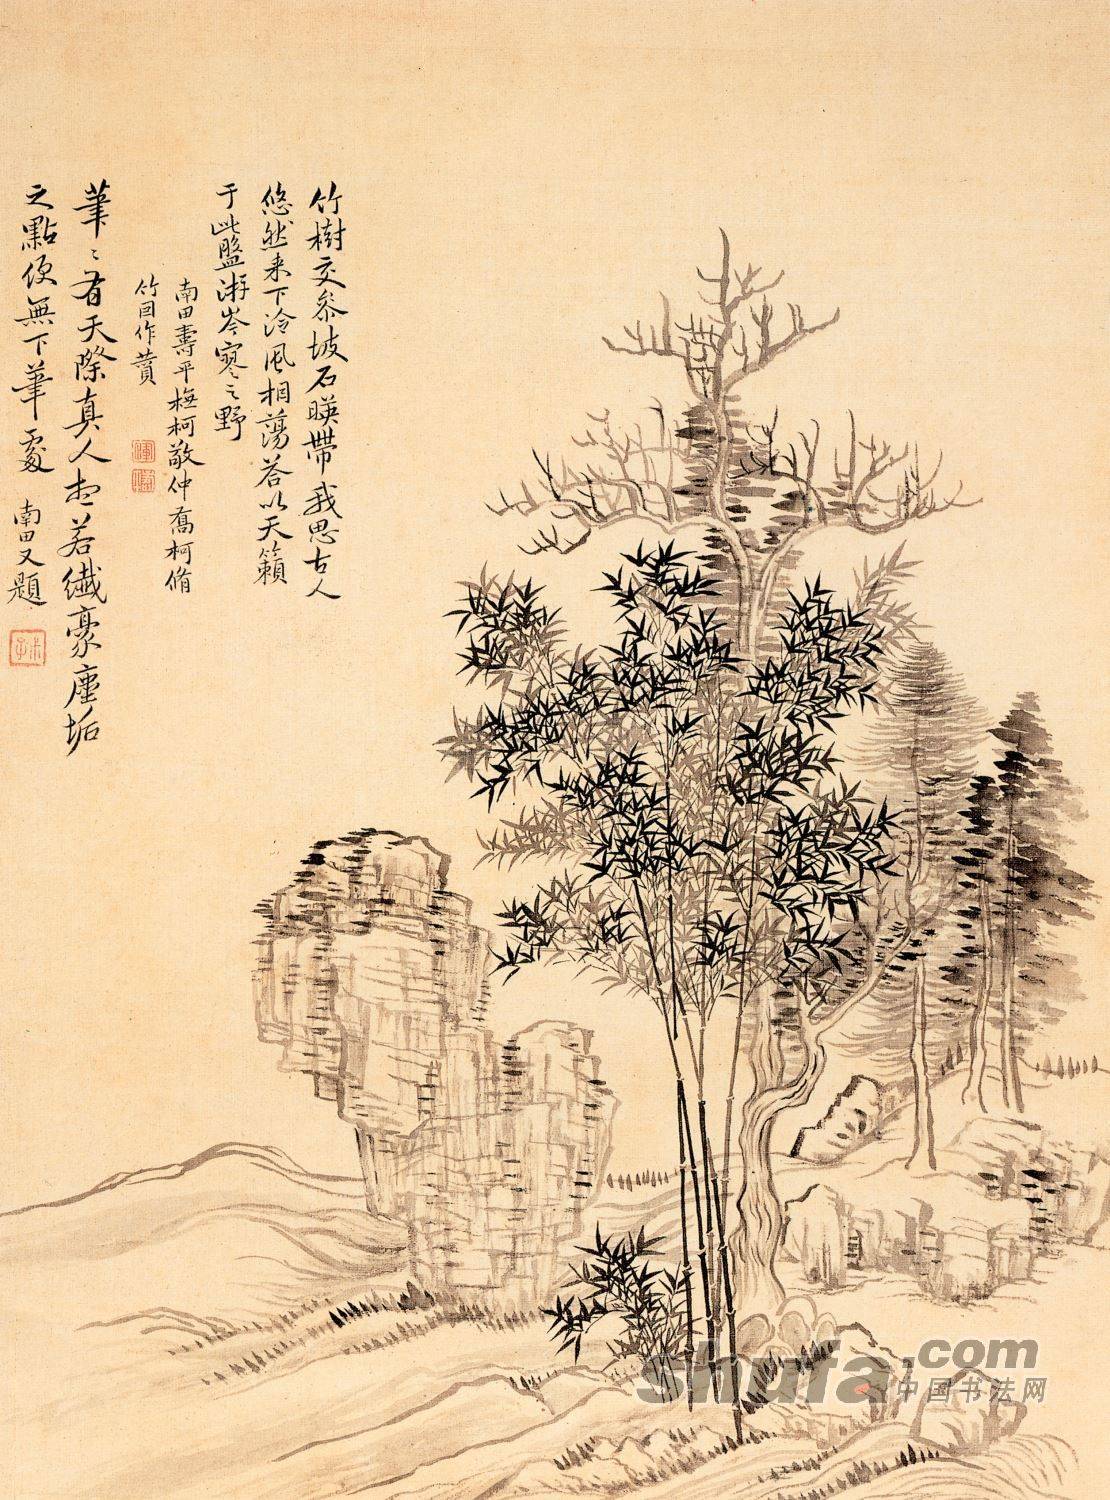 竹樹交參坡石暎帶我思古人
悠然来下泠風相蕩荅以天籟
于此盤游岑寥之野
南田壽平橅柯敬仲喬柯脩
竹因作蕡
筆〻有天際真人想若纖豪塵垢
之點便無下筆處 南田又題
shufa.com
中国书法网